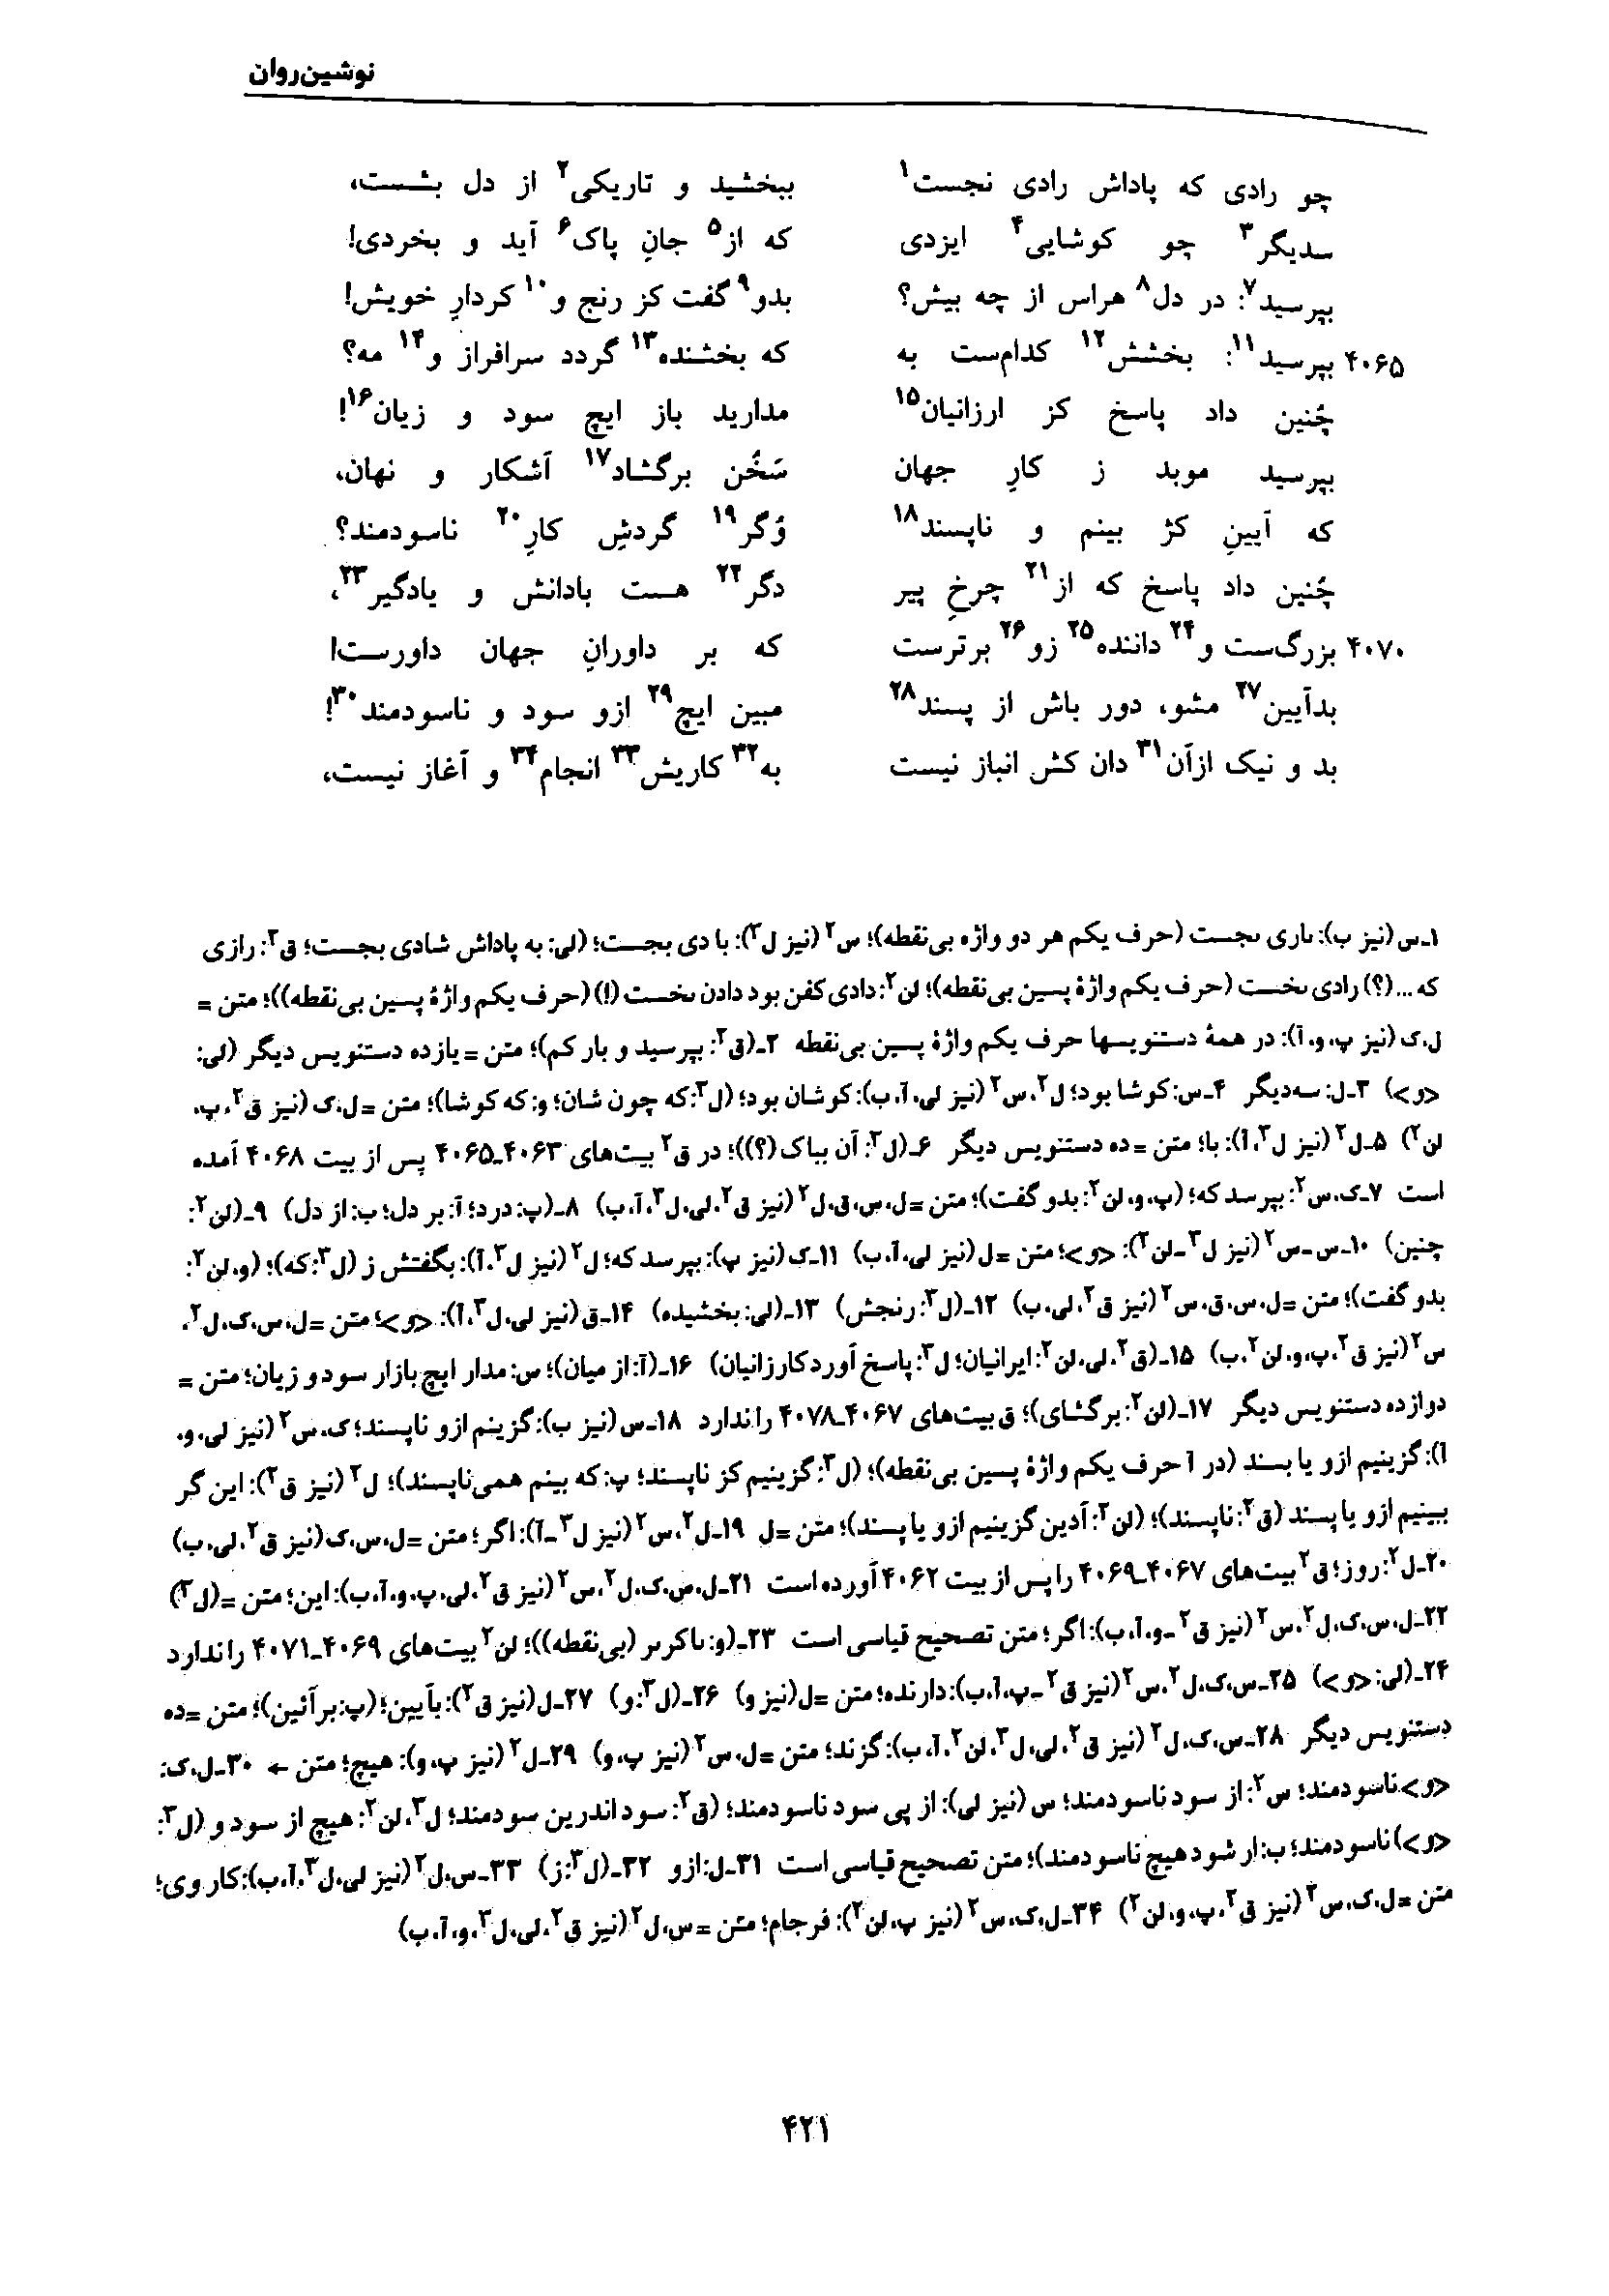 نوشین‌روان
چو رادی که پاداش رادی نجست۱ ببخشید و تاریکی۲ از دل بشست،
سدیگر۳ چو کوشایی۴ ایزدی که از۵ جانِ پاک۶ آید و بخردی!
بپرسید۷: در دل۸ هراس از چه بیش؟ بدو۹ گفت کز رنج و۱۰ کردارِ خویش!
۴۰۶۵ بپرسید۱۱: بخشش۱۲ کدام‌ست به که بخشنده۱۳ گردد سرافراز و۱۴ مه؟
چُنین داد پاسخ کز ارزانیان۱۵ مدارید باز ایچ سود و زیان۱۶!
بپرسید موبد ز کارِ جهان سَخُن برگشاد۱۷ آشکار و نهان،
که آیینِ کژ بینم و ناپسند۱۸ وُگر۱۹ گردشِ کارِ۲۰ ناسودمند؟
چُنین داد پاسخ که از۲۱ چرخِ پیر دگر۲۲ هست بادانش و یادگیر۲۳،
۴۰۷۰ بزرگ‌ست و۲۴ داننده۲۵ زو۲۶ برترست که بر داورانِ جهان داورست!
بدآیین۲۷ مشو، دور باش از پسند۲۸ مبین ایچ۲۹ ازو سود و ناسودمند۳۰!
بد و نیک ازآن۳۱ دان کش انباز نیست به۳۲ کاریش۳۳ انجام۳۴ و آغاز نیست،
۱ـ‌س (نیز ب): ٮاری ٮجست (حرف یکم هر دو واژه بی‌نقطه)؛ س۲ (نیز ل۳): با دی بجست؛ (لی: به پاداش شادی بجست؛ ق۲: رازی
که ... (؟) رادی ٮخست (حرف یکم واژهٔ پسین بی‌نقطه)؛ لن۲: دادی کفن بود دادن ٮخست (!) (حرف یکم واژهٔ پسین بی‌نقطه))؛ متن =
ل، ک (نیز پ، و، آ): در همهٔ دستنویسها حرف یکم واژهٔ پسین بی‌نقطه ۲ـ(ق۲: بپرسید و بار کم)؛ متن = یازده دستنویس دیگر (لی:
<و>) ۳ـ‌ل: سه‌دیگر ۴ـ‌س: کوشا بود؛ ل۲، س۲ (نیز لی، آ، ب): کوشان بود؛ (ل۳: که چون شان؛ و: که کوشا)؛ متن = ل، ک (نیز ق۲، پ،
لن۲) ۵ـ‌ل۲ (نیز ل۳، آ): با؛ متن = ده دستنویس دیگر ۶ـ(ل۳: آن بباک (؟))؛ در ق۲ بیت‌های ۴۰۶۳ـ۴۰۶۵ پس از بیت ۴۰۶۸ آمده
است ۷ـ‌ک، س۲: بپرسد که؛ (پ، و، لن۲: بدو گفت)؛ متن = ل، س، ق، ل۲ (نیز ق۲، لی، ل۳، آ، ب) ۸ـ(پ: درد؛ آ: بر دل؛ ب: از دل) ۹ـ(لن۲:
چنین) ۱۰ـ‌س ـ س۲ (نیز ل۳ ـ لن۲): <و>؛ متن = ل (نیز لی، آ، ب) ۱۱ـ‌ک (نیز پ): بپرسد که؛ ل۲ (نیز ل۳، آ): بگفتش ز (ل۳: که)؛ (و، لن۲:
بدو گفت)؛ متن = ل، س، ق، س۲ (نیز ق۲، لی، ب) ۱۲ـ(ل۳: رنجش) ۱۳ـ(لی: بخشیده) ۱۴ـ‌ق (نیز لی، ل۳، آ): <و>؛ متن = ل، س، ک، ل۲،
س۲ (نیز ق۲، پ، و، لن۲، ب) ۱۵ـ(ق۲، لی، لن۲: ایرانیان؛ ل۳: پاسخ آورد کارزانیان) ۱۶ـ(آ: از میان)؛ س: مدار ایچ بازار سود و زیان؛ متن =
دوازده دستنویس دیگر ۱۷ـ(لن۲: برگشای)؛ ق بیت‌های ۴۰۶۷ـ۴۰۷۸ را ندارد ۱۸ـ‌س (نیز ب): گزینم ازو ناپسند؛ ک، س۲ (نیز لی، و،
آ): گزینیم ازو یا بسند (در آ حرف یکم واژهٔ پسین بی‌نقطه)؛ (ل۳: گزینیم کز ناپسند؛ پ: که بینم همی‌ناپسند)؛ ل۲ (نیز ق۲): این گر
ببینیم ازو یا پسند (ق۲: ناپسند)؛ (لن۲: آدین گزینیم ازو یا پسند)؛ متن = ل ۱۹ـ‌ل۲، س۲ (نیز ل۳ ـ آ): اگر؛ متن = ل، س، ک (نیز ق۲، لی، ب)
۲۰ـ‌ل۲: روز؛ ق۲ بیت‌های ۴۰۶۷ـ۴۰۶۹ را پس از بیت ۴۰۶۲ آورده است ۲۱ـ‌ل، س، ک، ل۲، س۲ (نیز ق۲، لی، پ، و، آ، ب): این؛ متن = (ل۳)
۲۲ـ‌ل، س، ک، ل۲، س۲ (نیز ق۲ ـ و، آ، ب): اگر؛ متن تصحیح قیاسی است ۲۳ـ(و: ٮاکرٮر (بی‌نقطه))؛ لن۲ بیت‌های ۴۰۶۹ـ۴۰۷۱ را ندارد
۲۴ـ(لی: <و>) ۲۵ـ‌س، ک، ل۲، س۲ (نیز ق۲ ـ پ، آ، ب): دارنده؛ متن = ل (نیز و) ۲۶ـ(ل۳: و) ۲۷ـ‌ل (نیز ق۲): بآیین؛ (پ: برآئین)؛ متن = ده
دستنویس دیگر ۲۸ـ‌س، ک، ل۲ (نیز ق۲، لی، ل۳، لن۲، آ، ب): گزند؛ متن = ل، س۲ (نیز پ، و) ۲۹ـ‌ل۲ (نیز پ، و): هیچ؛ متن ← ۳۰ـ‌ل، ک:
<و> ناسودمند؛ س۲: از سود ناسودمند؛ س (نیز لی): از پی سود ناسودمند؛ (ق۲: سود اندرین سودمند؛ ل۳، لن۲: هیچ از سود و (ل۳:
<و>) ناسودمند؛ ب: ار شود هیچ ناسودمند)؛ متن تصحیح قیاسی است ۳۱ـ‌ل: ازو ۳۲ـ(ل۳: ز) ۳۳ـ‌س، ل۲ (نیز لی، ل۳، آ، ب): کار وی؛
متن = ل، ک، س۲ (نیز ق۲، پ، و، لن۲) ۳۴ـ‌ل، ک، س۲ (نیز پ، لن۲): فرجام؛ متن = س، ل۲ (نیز ق۲، لی، ل۳، و، آ، ب)
۴۲۱